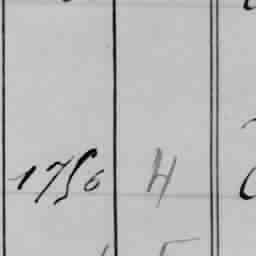 1756 H